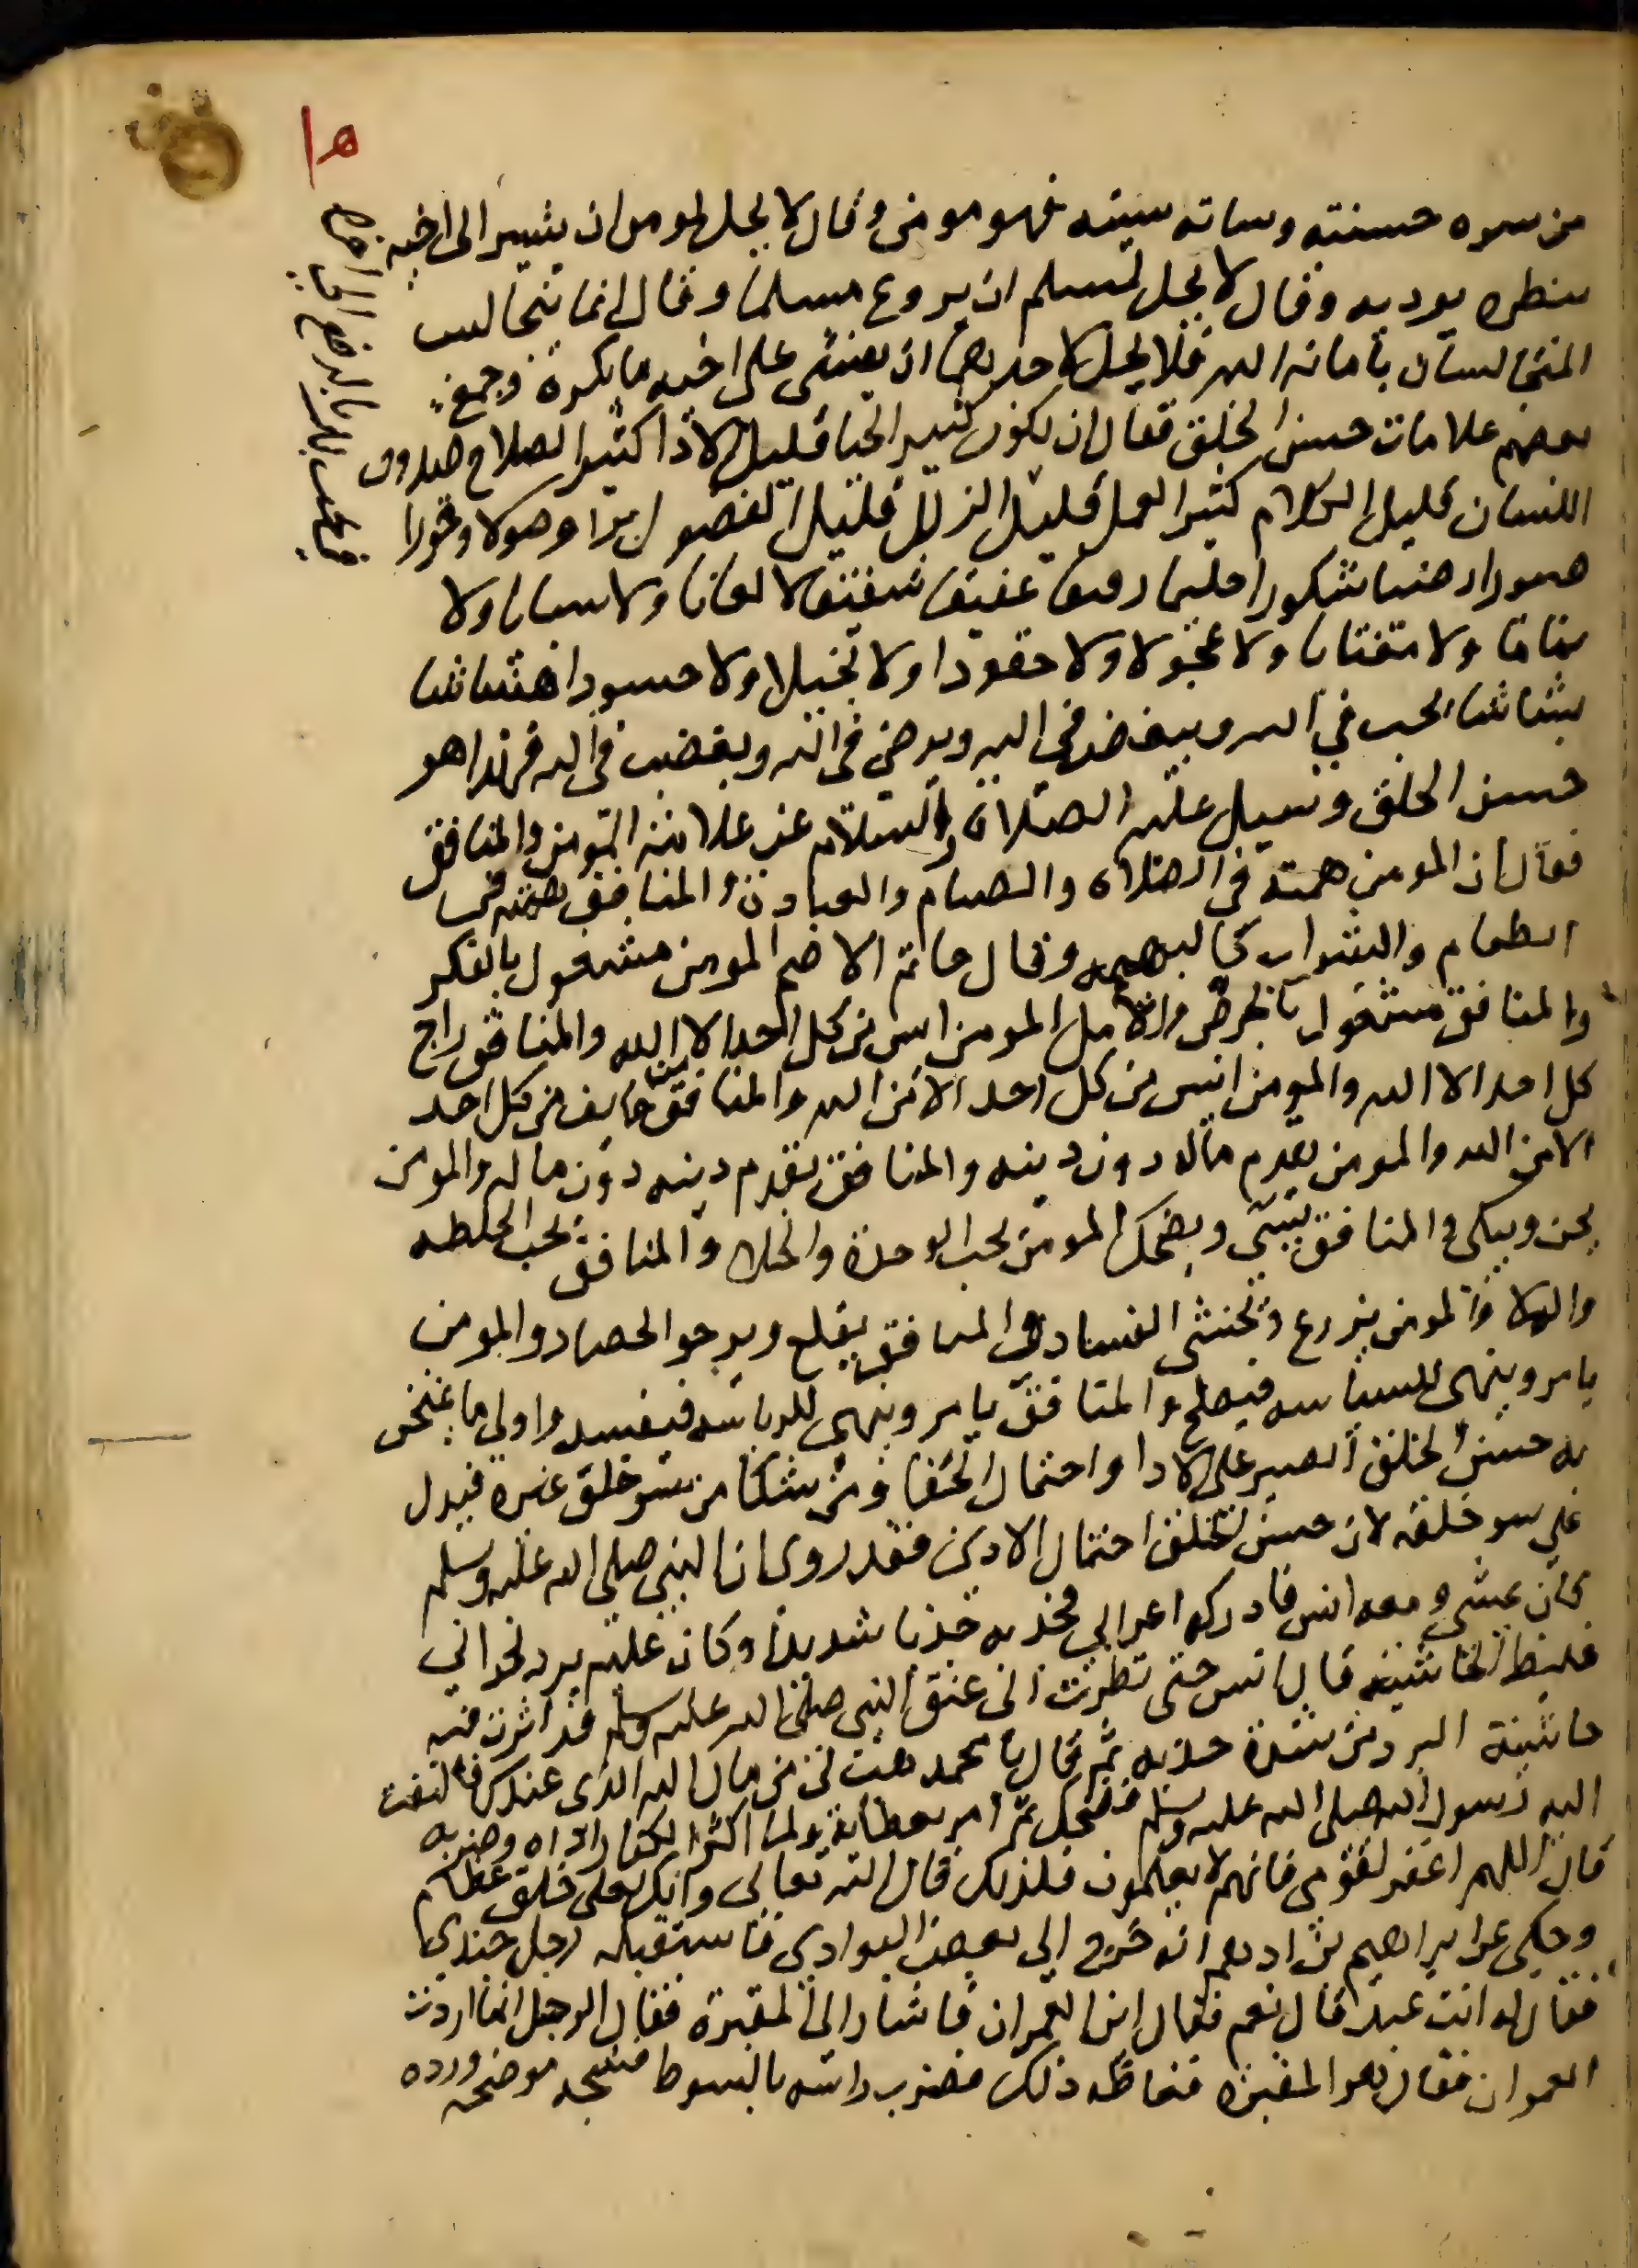 ١٥
من سره حسنته وساته سيئه فهو مومن وقال لا يحل لمومن ان يشير الى اخيه
بنظره يوديه وقال لا يحل لمسلم ان يروع مسلما وقال انما يتجالس
المتجالسان بامانه الله فلا يحل لاحدهما ان يفشى على اخيه ما يكره وجمع
بعضهم علامات حسن الخلق فقال ان يكون كثير الحيا قليل الاذا كثير الصلاح صدوق
اللسان قليل الكلام كثير العمل قليل الزلل قليل الفضول برا وصولا وقورا
صبورا رضيا شكورا حليما رفيقا عفيفا شفيقا لا لعانا ولا سبابا ولا
نماما ولا مغتابا ولا عجولا ولا حقودا ولا بخيلا ولا حسودا هشاشا
بشاشا يحب في الله ويبغض في الله ويرضى في الله ويغضب في الله فهذا هو
حسن الخلق وسيل عليه الصلاة والسلام عن علامة المومن والمنافق
فقال ان المومن همته في الصلاة والصيام والعبادة والمنافق همته في
الطعام والشراب كالبهيمه وقال حاتم الاصم المومن مشغول بالفكر
والمنافق مشغول بالحرص والامل المومن ايس من كل احد الا الله والمنافق راج
كل احد الا الله والمومن انيس من كل احد الا من الله والمنافق خايف من كل احد
الا من الله والمومن يقدم ماله دون دينه والمنافق يقدم دينه دون ماله والمومن
يحسن ويبكى والمنافق يسي ويضحك المومن يحب الوحدة والخلا والمنافق يحب الخلطه
والملا والمومن يزرع ويخشى الفساد والمنافق يقلع ويرجو الحصاد والمومن
يامر وينهى للسياسه فيصلح والمنافق يامر وينهى للرياسه فيفسد واولى ما يمتحن
به حسن الخلق الصبر على الاذا واحتمال الجفا ومن شكا من سو خلق غيره فيدل
على سو خلقه لان حسن الخلق احتمال الاذى فقد روى ان النبي صلى الله عليه وسلم
كان يمشي ومعه انس فادركه اعرابي فجذبه جذبا شديدا وكان عليه برد نجراني
غليظ الحاشيه قال انس حتى نظرت الى عنق النبي صلى الله عليه وسلم قد اثرت فيه
حاشية البرد من شدة جذبه ثم قال يا محمد هب لى من مال الله الذى عندك فالتفت
اليه رسول الله صلى الله عليه وسلم فضحك ثم امر بعطايه ولما اكثر الكفار اذاه وضربه
قال اللهم اغفر لقومى فانهم لا يعلمون فلذلك قال الله تعالى وانك لعلى خلق عظيم
وحكى عن ابراهيم بن ادهم انه خرج الى بعض البوادي فاستقبله رجل جندي
فقال له انت عبد قال نعم فقال اين العمران فاشار الى المقبرة فقال الرجل انما اردت
العمران فقال هو المقبره فغاظه ذلك فضرب راسه بالسوط فشجه موضحه ورده